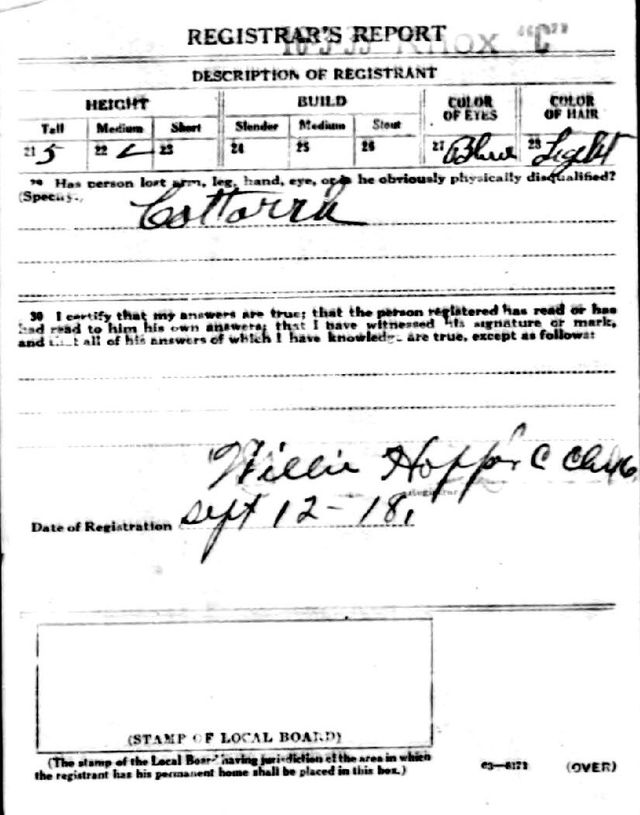 REGISTRAR'S REPORT
Knox "C"
DESCRIPTION OF REGISTRANT
HEIGHT BUILD COLOR OF EYES COLOR OF HAIR
Tall Medium Short Slender Medium Stout
21 5 22 23 24 25 26 27 Blue 28 Light
29 Has person lost arm, leg, hand, eye, or is he obviously physically disqualified?
(Specify.)
Cottarra
30 I certify that my answers are true; that the person registered has read or has
had read to him his own answers; that I have witnessed his signature or mark,
and that all of his answers of which I have knowledge are true, except as follows:
Willie Hopper C
Registrar
Date of Registration Sept 12-18,
(STAMP OF LOCAL BOARD)
(The stamp of the Local Board having jurisdiction of the area in which
the registrant has his permanent home shall be placed in this box.)
03—6172 (OVER)